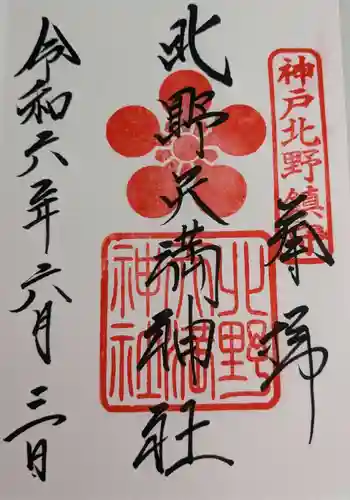 奉拝
神戸北野鎮守
北野天満神社
北野天満神社
令和六年六月三日